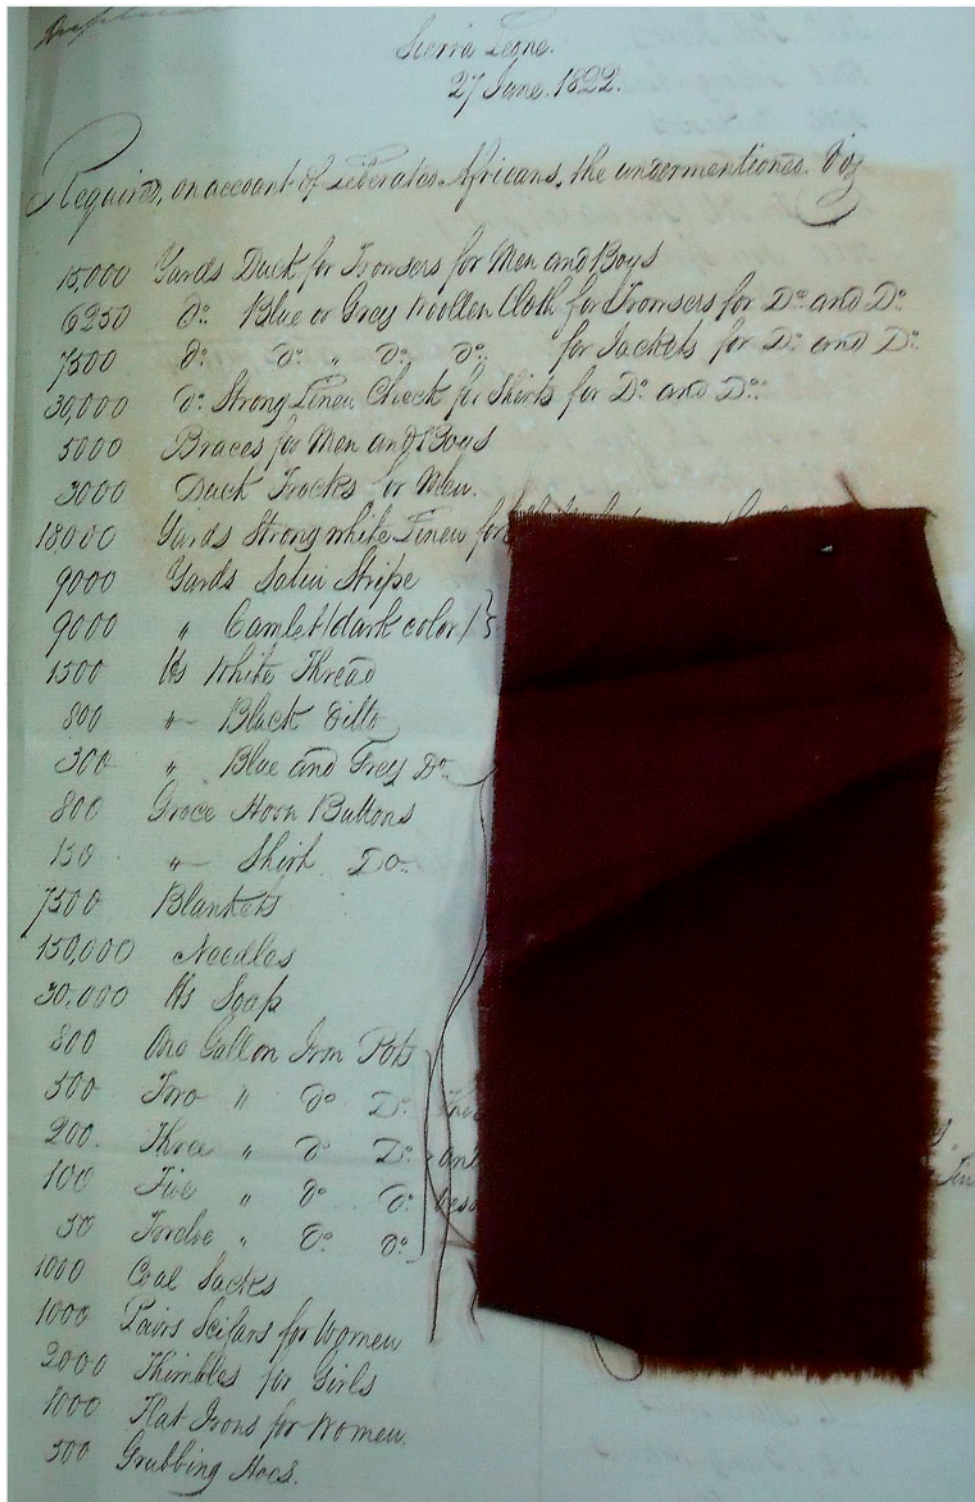 Sierra Leone.
27 June. 1822.
Required, on account of Liberated Africans, the undermentioned. Viz
15,000 Yards Duck for Trowsers for Men and Boys
6250 do. Blue or Grey Woollen Cloth for Trowsers for Do. and Do.
7500 do. do. " do. do. for Jackets for Do. and Do.
30,000 do. Strong Linen Check for Shirts for Do. and Do.
5000 Braces for Men and Boys
3000 Duck Frocks for Men.
18,000 Yards Strong white Linen for
9000 Yards Satin Stripe
9000 " Camlet /dark color/ }
1500 lbs White Thread
800 " Black ditto
300 " Blue and Grey Do.
800 Groce Horn Buttons
150 " Shirt Do.
7500 Blankets
150,000 Needles
30,000 lbs Soap
800 One Gallon Iron Pots
500 Two " do Do.
200. Three " do Do. and
100 Five " do do.
50 Twelve " do. do.
1000 Coal Sacks
1000 Pairs Scifars for Women
2000 Thimbles for Girls
1000 Flat Irons for Women.
500 Grubbing Hoes.